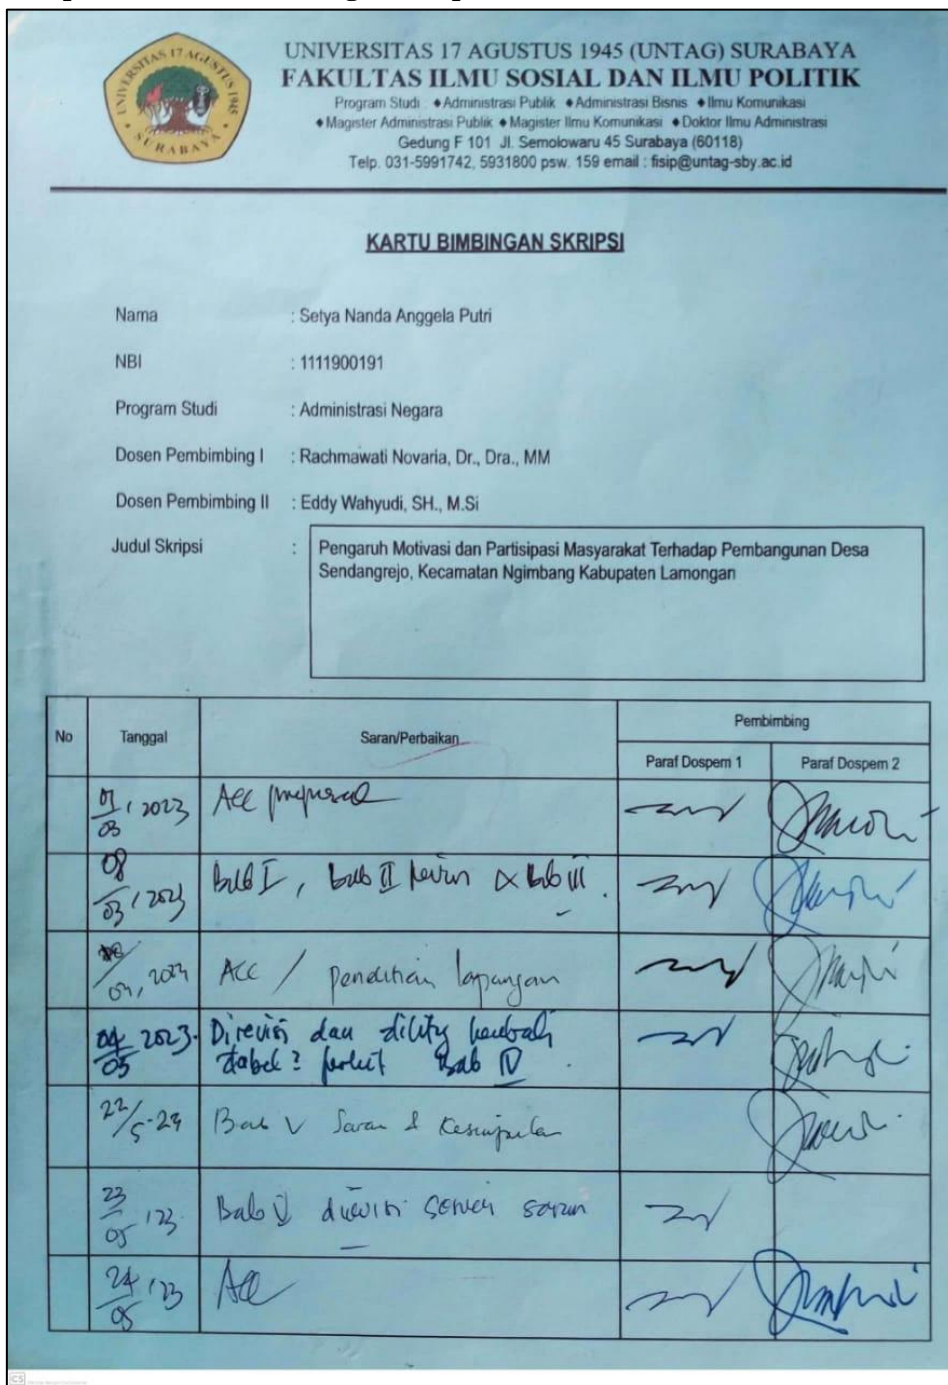 UNIVERSITAS 17 AGUSTUS 1945
SURABAYA
UNIVERSITAS 17 AGUSTUS 1945 (UNTAG) SURABAYA
FAKULTAS ILMU SOSIAL DAN ILMU POLITIK
Program Studi : ◆Administrasi Publik ◆Administrasi Bisnis ◆Ilmu Komunikasi
◆Magister Administrasi Publik ◆Magister Ilmu Komunikasi ◆Doktor Ilmu Administrasi
Gedung F 101 Jl. Semolowaru 45 Surabaya (60118)
Telp. 031-5991742, 5931800 psw. 159 email : fisip@untag-sby.ac.id
KARTU BIMBINGAN SKRIPSI
Nama : Setya Nanda Anggela Putri
NBI : 1111900191
Program Studi : Administrasi Negara
Dosen Pembimbing I : Rachmawati Novaria, Dr., Dra., MM
Dosen Pembimbing II : Eddy Wahyudi, SH., M.Si
Judul Skripsi : Pengaruh Motivasi dan Partisipasi Masyarakat Terhadap Pembangunan Desa
Sendangrejo, Kecamatan Ngimbang Kabupaten Lamongan
No Tanggal Saran/Perbaikan Pembimbing
Paraf Dospem 1 Paraf Dospem 2
01/03, 2023 Acc proposal
08/03, 2023 Bab I, Bab II & Bab III.
ACC / penelitian lapangan
04/05 2023. Direvisi dan
tabel Bab IV.
22/5-23 Bab V Saran & Kesimpulan
23/05, 23 Bab V direvisi sesuai saran
24/05, 23 Acc
CS